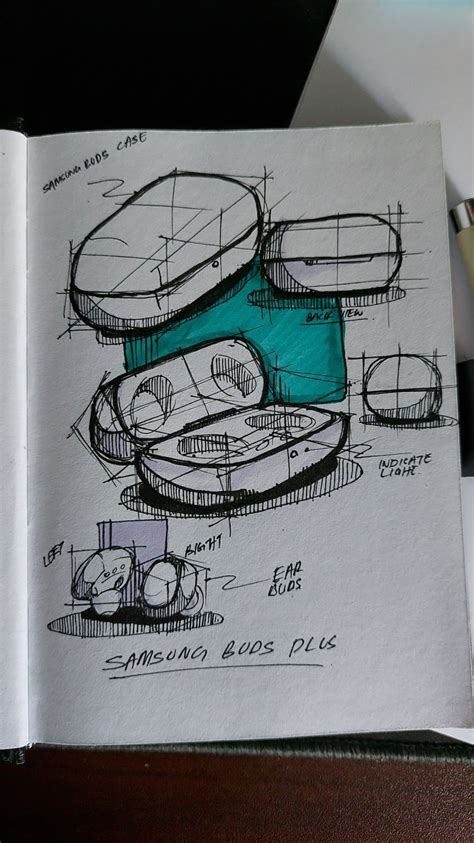 SAMSUNG BUDS CASE
BACK VIEW
INDICATE
LIGHT.
LEFT
RIGHT
EAR
BUDS
SAMSUNG BUDS PLUS